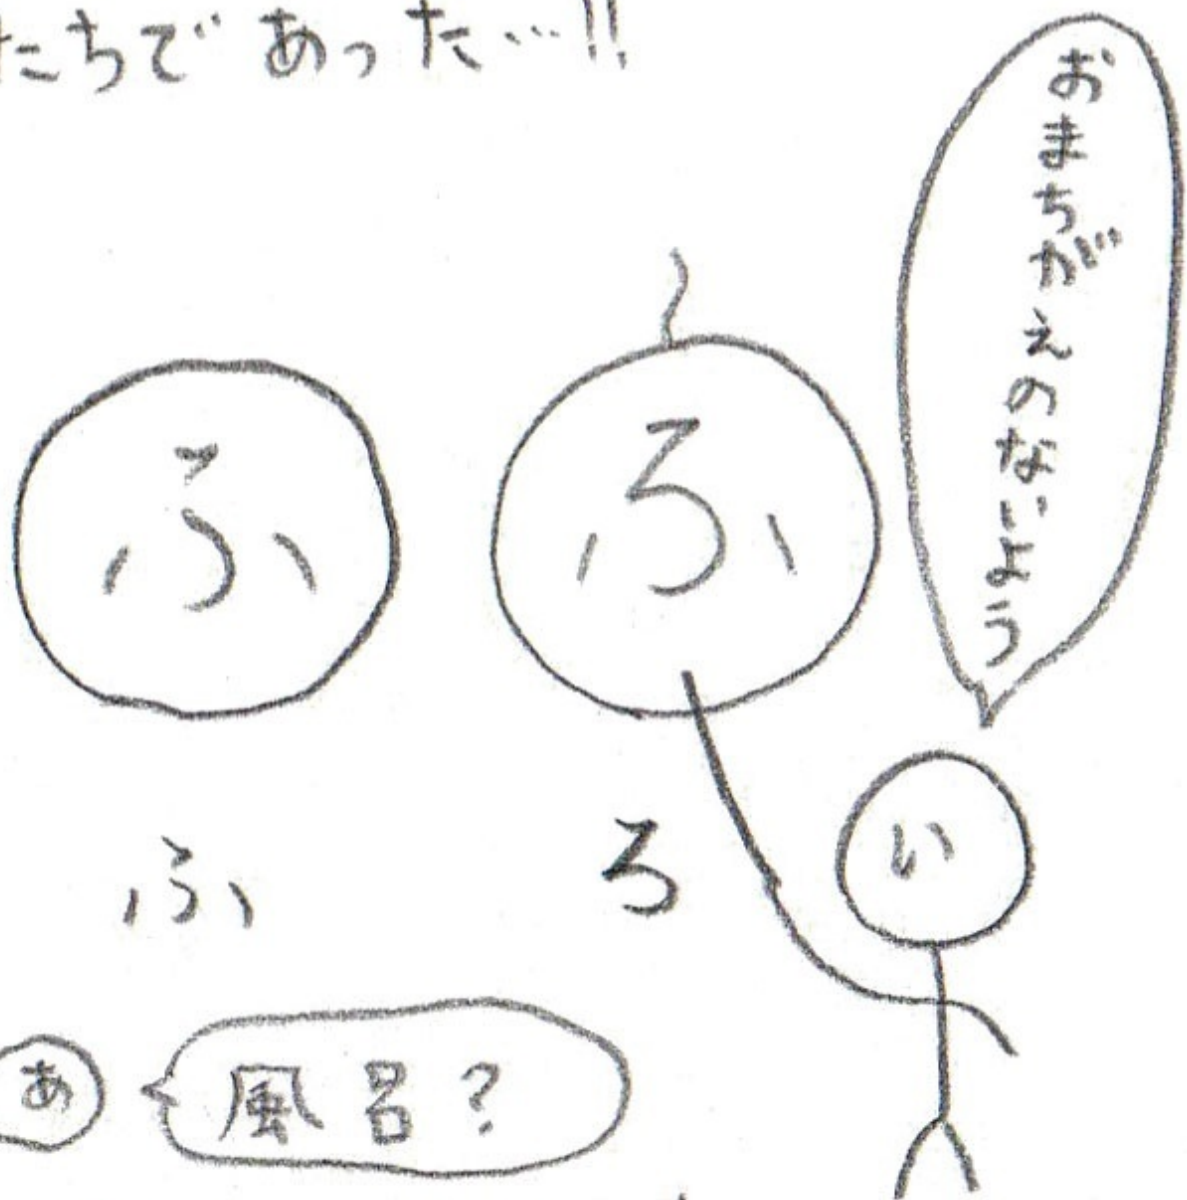 たちであった…!!
おまちがえのないよう
ふ
ろ
ふ
ろ
い
あ
風呂?